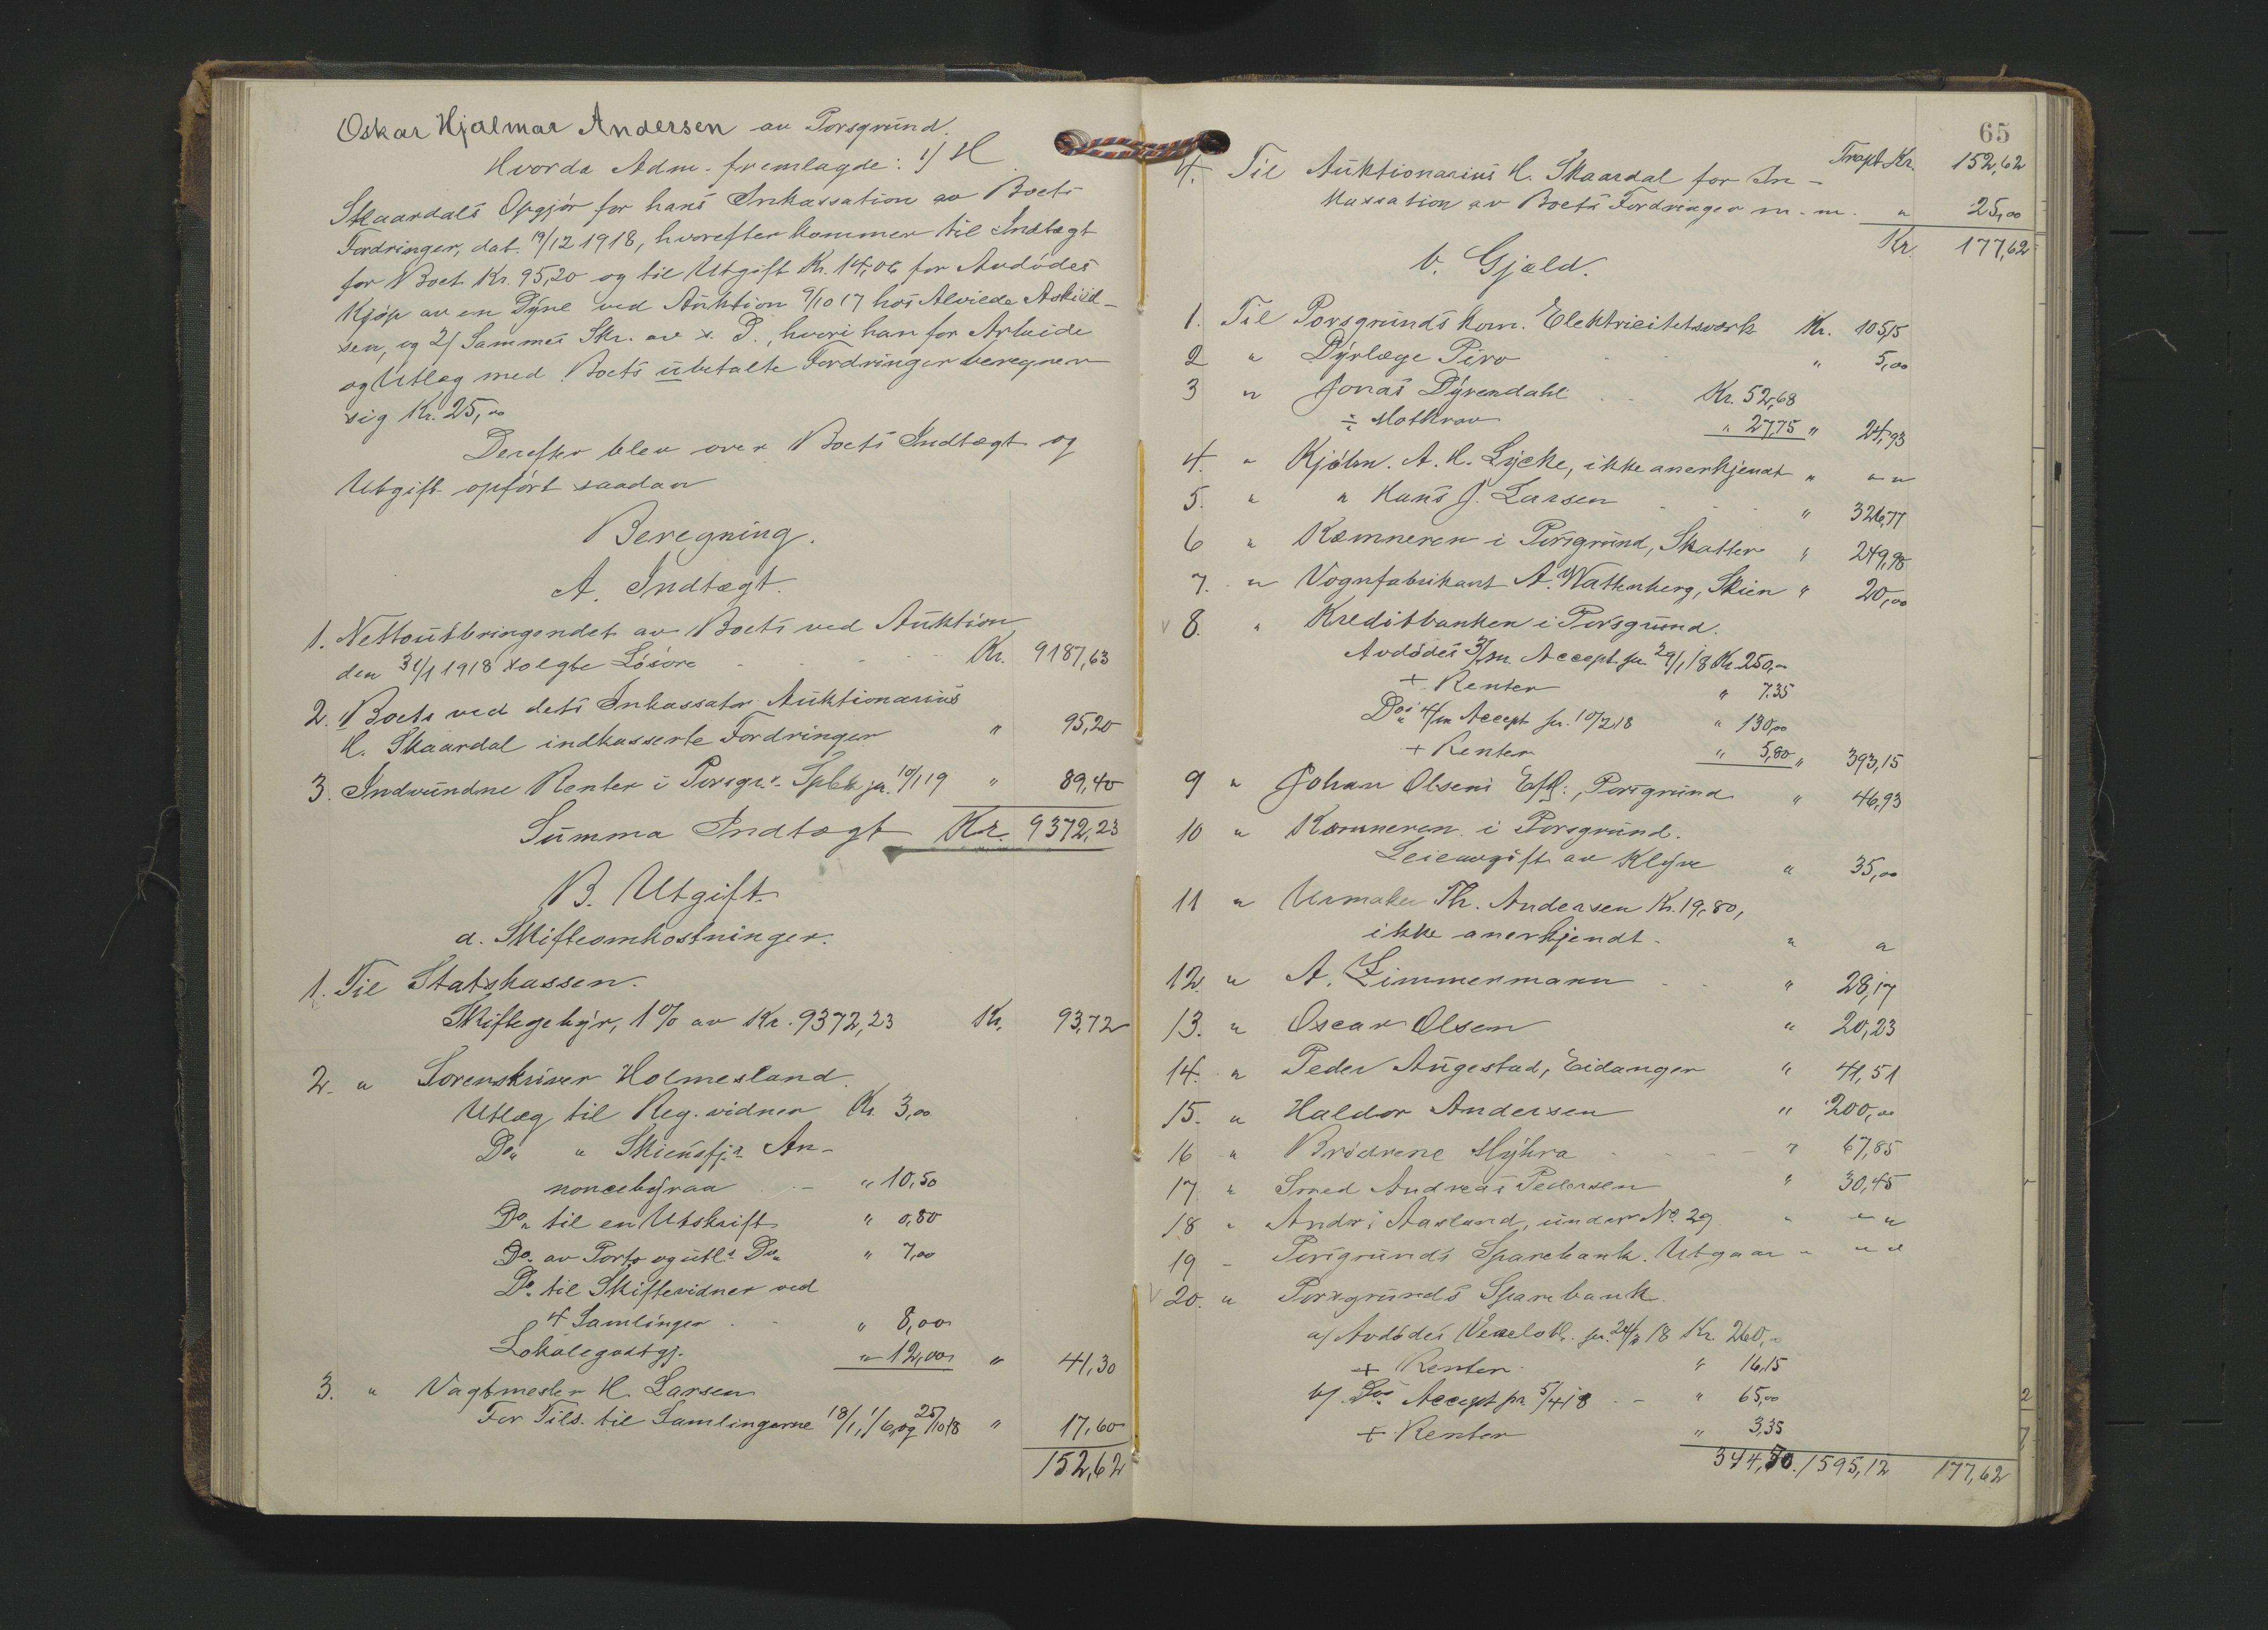 Oskar Hjalmar Andersen av Porsgrund.
Hvorda Adm. fremlagde: 1/ H
Skaardals Opgjör for hans Inkassation av Boets
Fordringer, dat. 19/12 1918, hvorefter kommer til Indtægt
for Boet Kr. 95,20 og til Utgift Kr. 14,06 for Avdödes
Kjöp av en Dyne ved Auktion 9/10 17 hos Alvilde Askild-
sen, og 2/ Sammes Skr. av s. D., hvori han for Arbeide
og Utlæg med Boets ubetalte Fordringer beregner
sig Kr. 25,00
Derefter blev over Boets Indtægt og
Utgift opfört saadan
Beregning.
A. Indtægt.
1. Nettoutbringendet av Boets ved Auktion
den 31/1 1918 solgte Lösöre Kr. 9187,63
2. Boets ved dets Inkassator Auktionarius
H. Skaardal indkasserte Fordringer " 95,20
3. Indvundne Renter i Porsgr. Spbk pr. 10/1 19 " 89,40
Summa Indtægt Kr. 9372,23
B. Utgift.
a. Skifteomkostninger.
1. Til Statskassen.
Skiftegebyr, 1% av Kr. 9372,23 Kr. 93,72
2. " Sorenskriver Holmesland.
Utlæg til Reg. vidner Kr. 3,00
Do " Skiensfj. An-
noncebyraa " 10,50
Do til en Utskrift " 0,80
Do av Porto og utl. Do " 7,00
Do til Skiftevidner ved
4 Samlinger " 8,00
Lokalegodtgj. " 12,00 " 41,30
3. " Vagtmester H. Larsen
For Tils. til Samlingerne 18/1, 1/6, og 25/10 18 " 17,60
152,62
65
Trspt. Kr. 152,62
4. Til Auktionarius H. Skaardal for In-
kassation av Boets Fordringer m. m. " 25,00
Kr. 177,62
b. Gjæld.
1. Til Porsgrunds kom. Elektricitetsværk Kr. 105,15
2 " Dyrlæge Piro " 5,00
3 " Jonas Dyrendahl Kr. 52,68
÷ Motkrav " 27,75 " 24,93
4. " Kjöbm. A. H. Lycke, ikke anerkjendt " " "
5. " " Hans J. Larsen " 326,77
6 " Kæmneren i Porsgrund, Skatter " 249,98
7. " Vognfabrikant A. Wattenberg, Skien " 20,00
8. " Kreditbanken i Porsgrund.
Avdödes 3/m Accept pr 29/1 18 Kr. 250,-
+ Renter " 7,35
Dos 4/m Accept pr. 10/2 18 " 130,00
+ Renter " 5,80 " 393,15
9 " Johan Olsens Eftf., Porsgrund " 46,93
10 " Kæmneren i Porsgrund.
Leieavgift av Klyve " 35,00
11 " Urmaker Th. Andersen Kr. 19,80,
ikke anerkjendt. " "
12. " A. Zimmermann " 28,17
13. " Oscar Olsen " 20,23
14. " Peder Augestad, Eidanger " 41,51
15. " Haldor Andersen " 200,00
16 " Brödrene Myhra " 67,85
17 " Smed Andreas Pedersen " 30,45
18 " Andr. Aasland, under No. 29 " " "
19 - Porsgrunds Sparebank. Utgaar " " "
20. " Porsgrunds Sparebank.
a/ Avdödes Vexelobl. pr. 24/3 18 Kr. 260,-
+ Renter " 16,15
b/ Dos Accept pr 5/4 18 " 65,00
+ Renter " 3,35
344,50. 1595,12 177,62